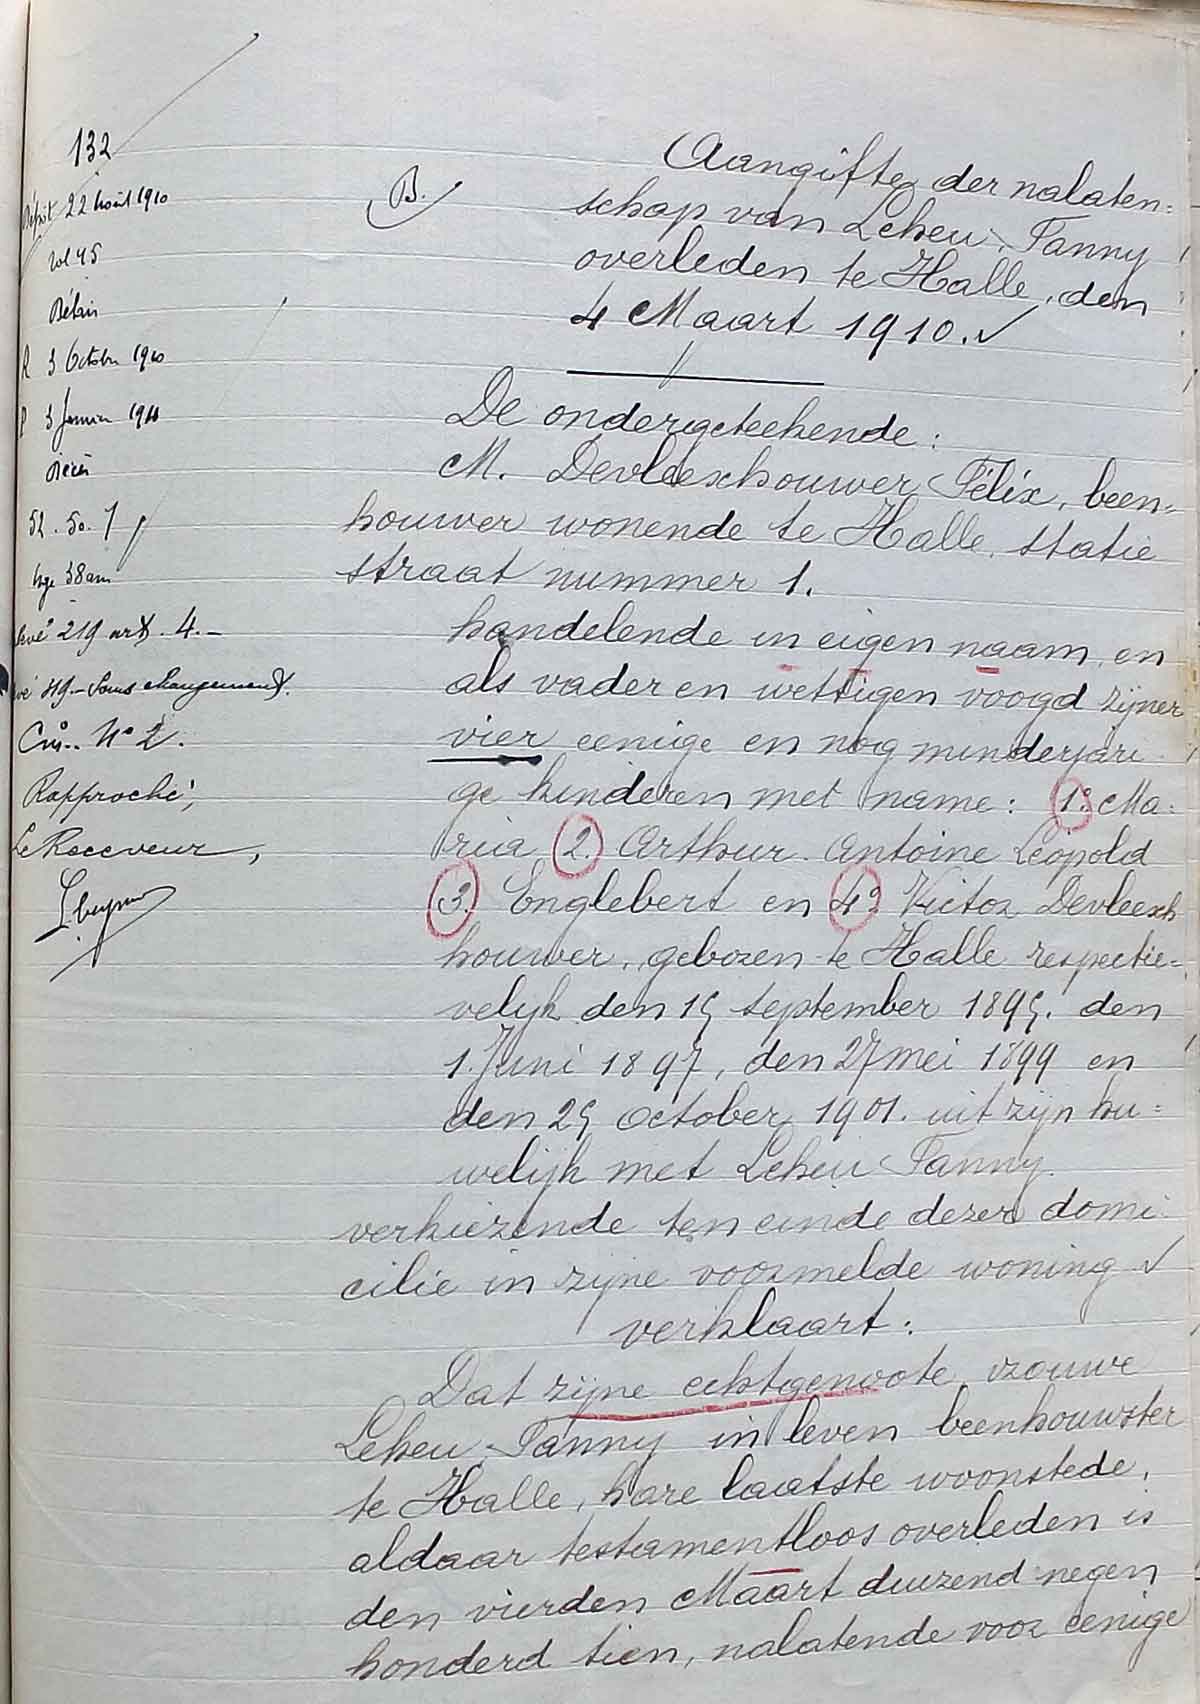 132
Dépôt 22 Août 1910
vol 45
Délais
R 3 Octobre 1910
P 3 Janvier 1911
52. 50. 1
age 38 ans
219 art. 4.-
419.- Sans changement.
N° 2.
Rapproché,
Le Receveur,
B.
Aangifte der nalaten=
schap van Lekeu, Fanny
overleden te Halle, den
4 Maart 1910. ✓
De ondergeteekende:
M. Devleeschouwer Félix, been=
houwer wonende te Halle, statie
straat nummer 1.
handelende in eigen naam, en
als vader en wettigen voogd zijner
vier eenige en nog minderjari
ge kinderen met name: 1° Ma=
ria 2. Arthur. Antoine Léopold
3. Englebert en 4° Victor Devleesch
houwer, geboren te Halle respectie=
velijk den 15 september 1895. den
1. Juni 1897, den 27 mei 1899 en
den 25 october 1901. uit zijn hu=
welijk met Lekeu Fanny.
verkiezende ten einde dezer domi
cilie in zijne voormelde woning ✓
verklaart:
Dat zijne echtgenoote vrouwe
Lekeu, Fanny in leven beenhouwster
te Halle, hare laatste woonstede,
aldaar testamentloos overleden is
den vierden Maart duizend negen
honderd tien, nalatende voor eenige